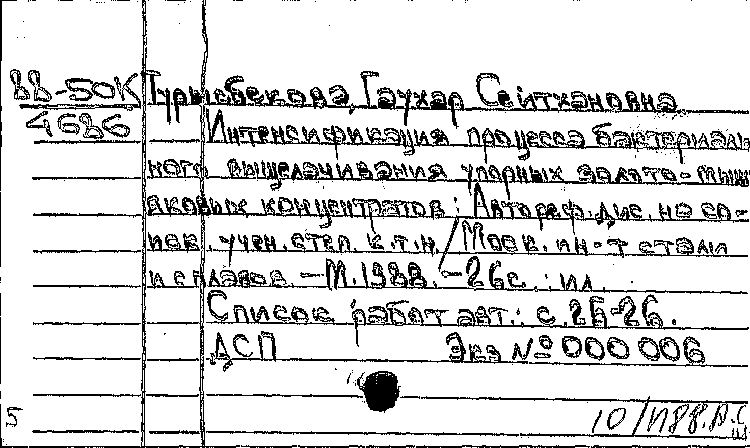 88-50К Турысбекова, Гаухар Сейтхановна
4686 Интенсификация процесса бактериаль-
ного выщелачивания упорных золото-мышь-
яковых концентратов: Автореф. дис. на со-
иск. учен. степ. к.т.н. / Моск. ин-т стали
и сплавов. — М. 1988. — 26 с. : ил.
Список работ авт.: с. 25-26.
ДСП Экз № 000 006
5